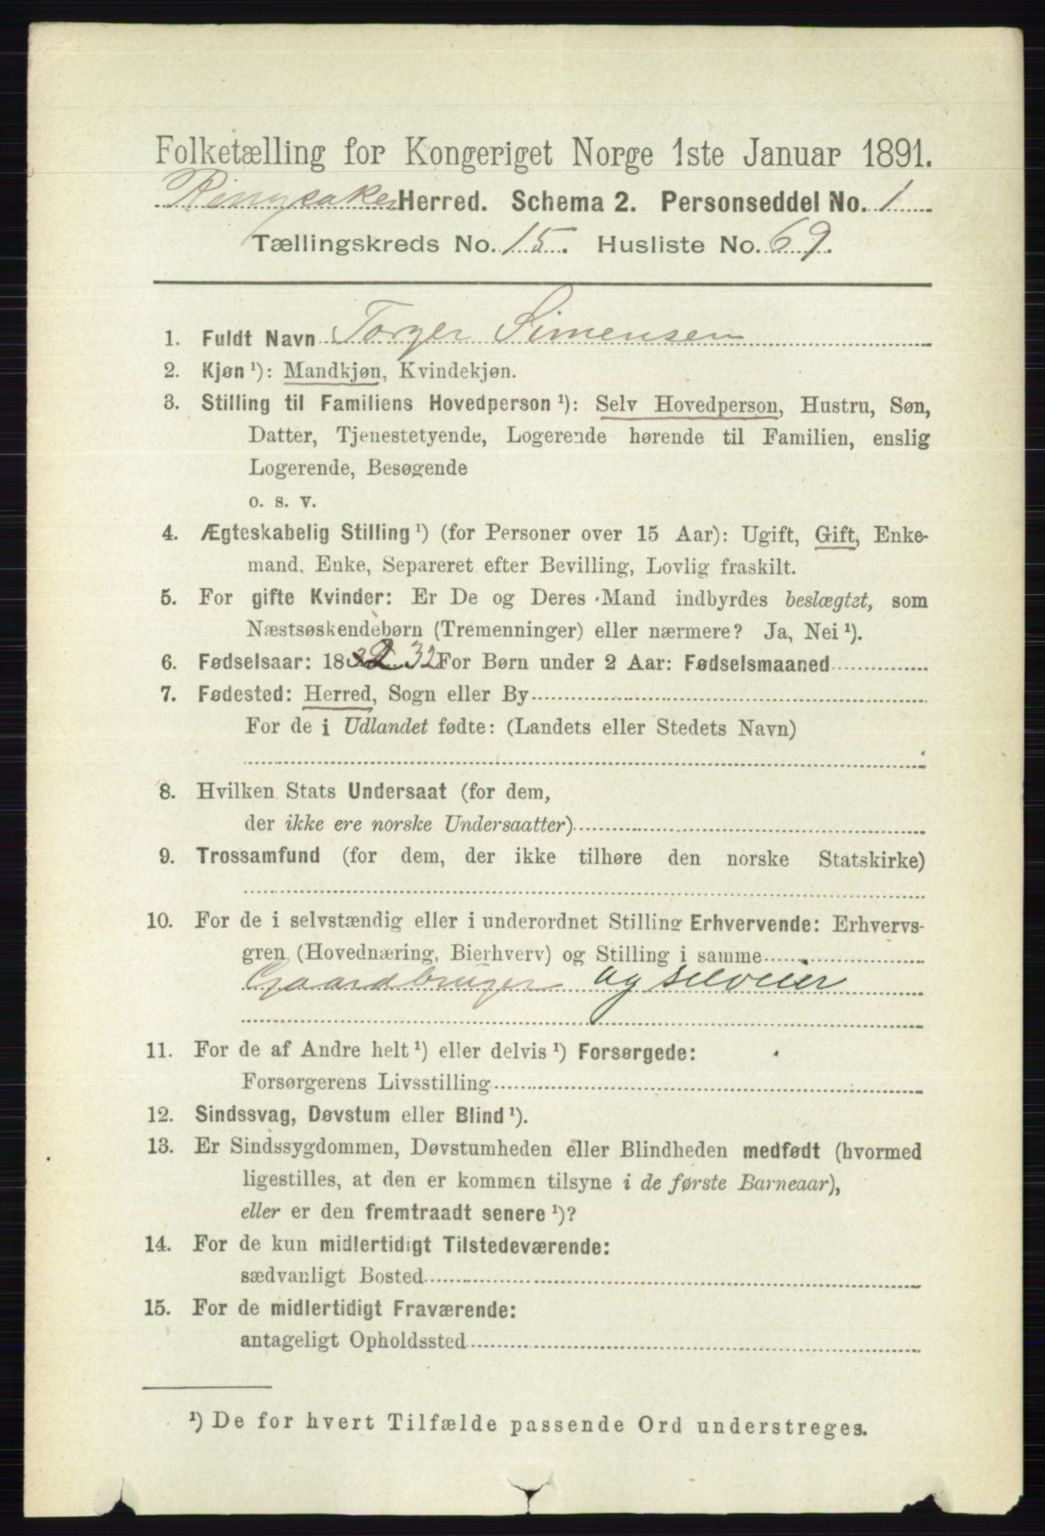 Folketælling for Kongeriget Norge 1ste Januar 1891.
Ringsaker Herred. Schema 2. Personseddel No. 1
Tællingskreds No. 15. Husliste No. 69.
1. Fuldt Navn Torger Simensen
2. Kjøn ¹): Mandkjøn, Kvindekjøn.
3. Stilling til Familiens Hovedperson ¹): Selv Hovedperson, Hustru, Søn,
Datter, Tjenestetyende, Logerende hørende til Familien, enslig
Logerende, Besøgende
o. s. v.
4. Ægteskabelig Stilling ¹) (for Personer over 15 Aar): Ugift, Gift, Enke-
mand, Enke, Separeret efter Bevilling, Lovlig fraskilt.
5. For gifte Kvinder: Er De og Deres Mand indbyrdes beslægtet, som
Næstsøskendebørn (Tremenninger) eller nærmere? Ja, Nei ¹).
6. Fødselsaar: 18 32 For Børn under 2 Aar: Fødselsmaaned
7. Fødested: Herred, Sogn eller By
For de i Udlandet fødte: (Landets eller Stedets Navn)
8. Hvilken Stats Undersaat (for dem,
der ikke ere norske Undersaatter)
9. Trossamfund (for dem, der ikke tilhøre den norske Statskirke)
10. For de i selvstændig eller i underordnet Stilling Erhvervende: Erhvervs-
gren (Hovednæring, Bierhverv) og Stilling i samme
Gaardbruger og selveier
11. For de af Andre helt ¹) eller delvis ¹) Forsørgede:
Forsørgerens Livsstilling
12. Sindssvag, Døvstum eller Blind ¹).
13. Er Sindssygdommen, Døvstumheden eller Blindheden medfødt (hvormed
ligestilles, at den er kommen tilsyne i de første Barneaar),
eller er den fremtraadt senere ¹)?
14. For de kun midlertidigt Tilstedeværende:
sædvanligt Bosted
15. For de midlertidigt Fraværende:
antageligt Opholdssted
¹) De for hvert Tilfælde passende Ord understreges.